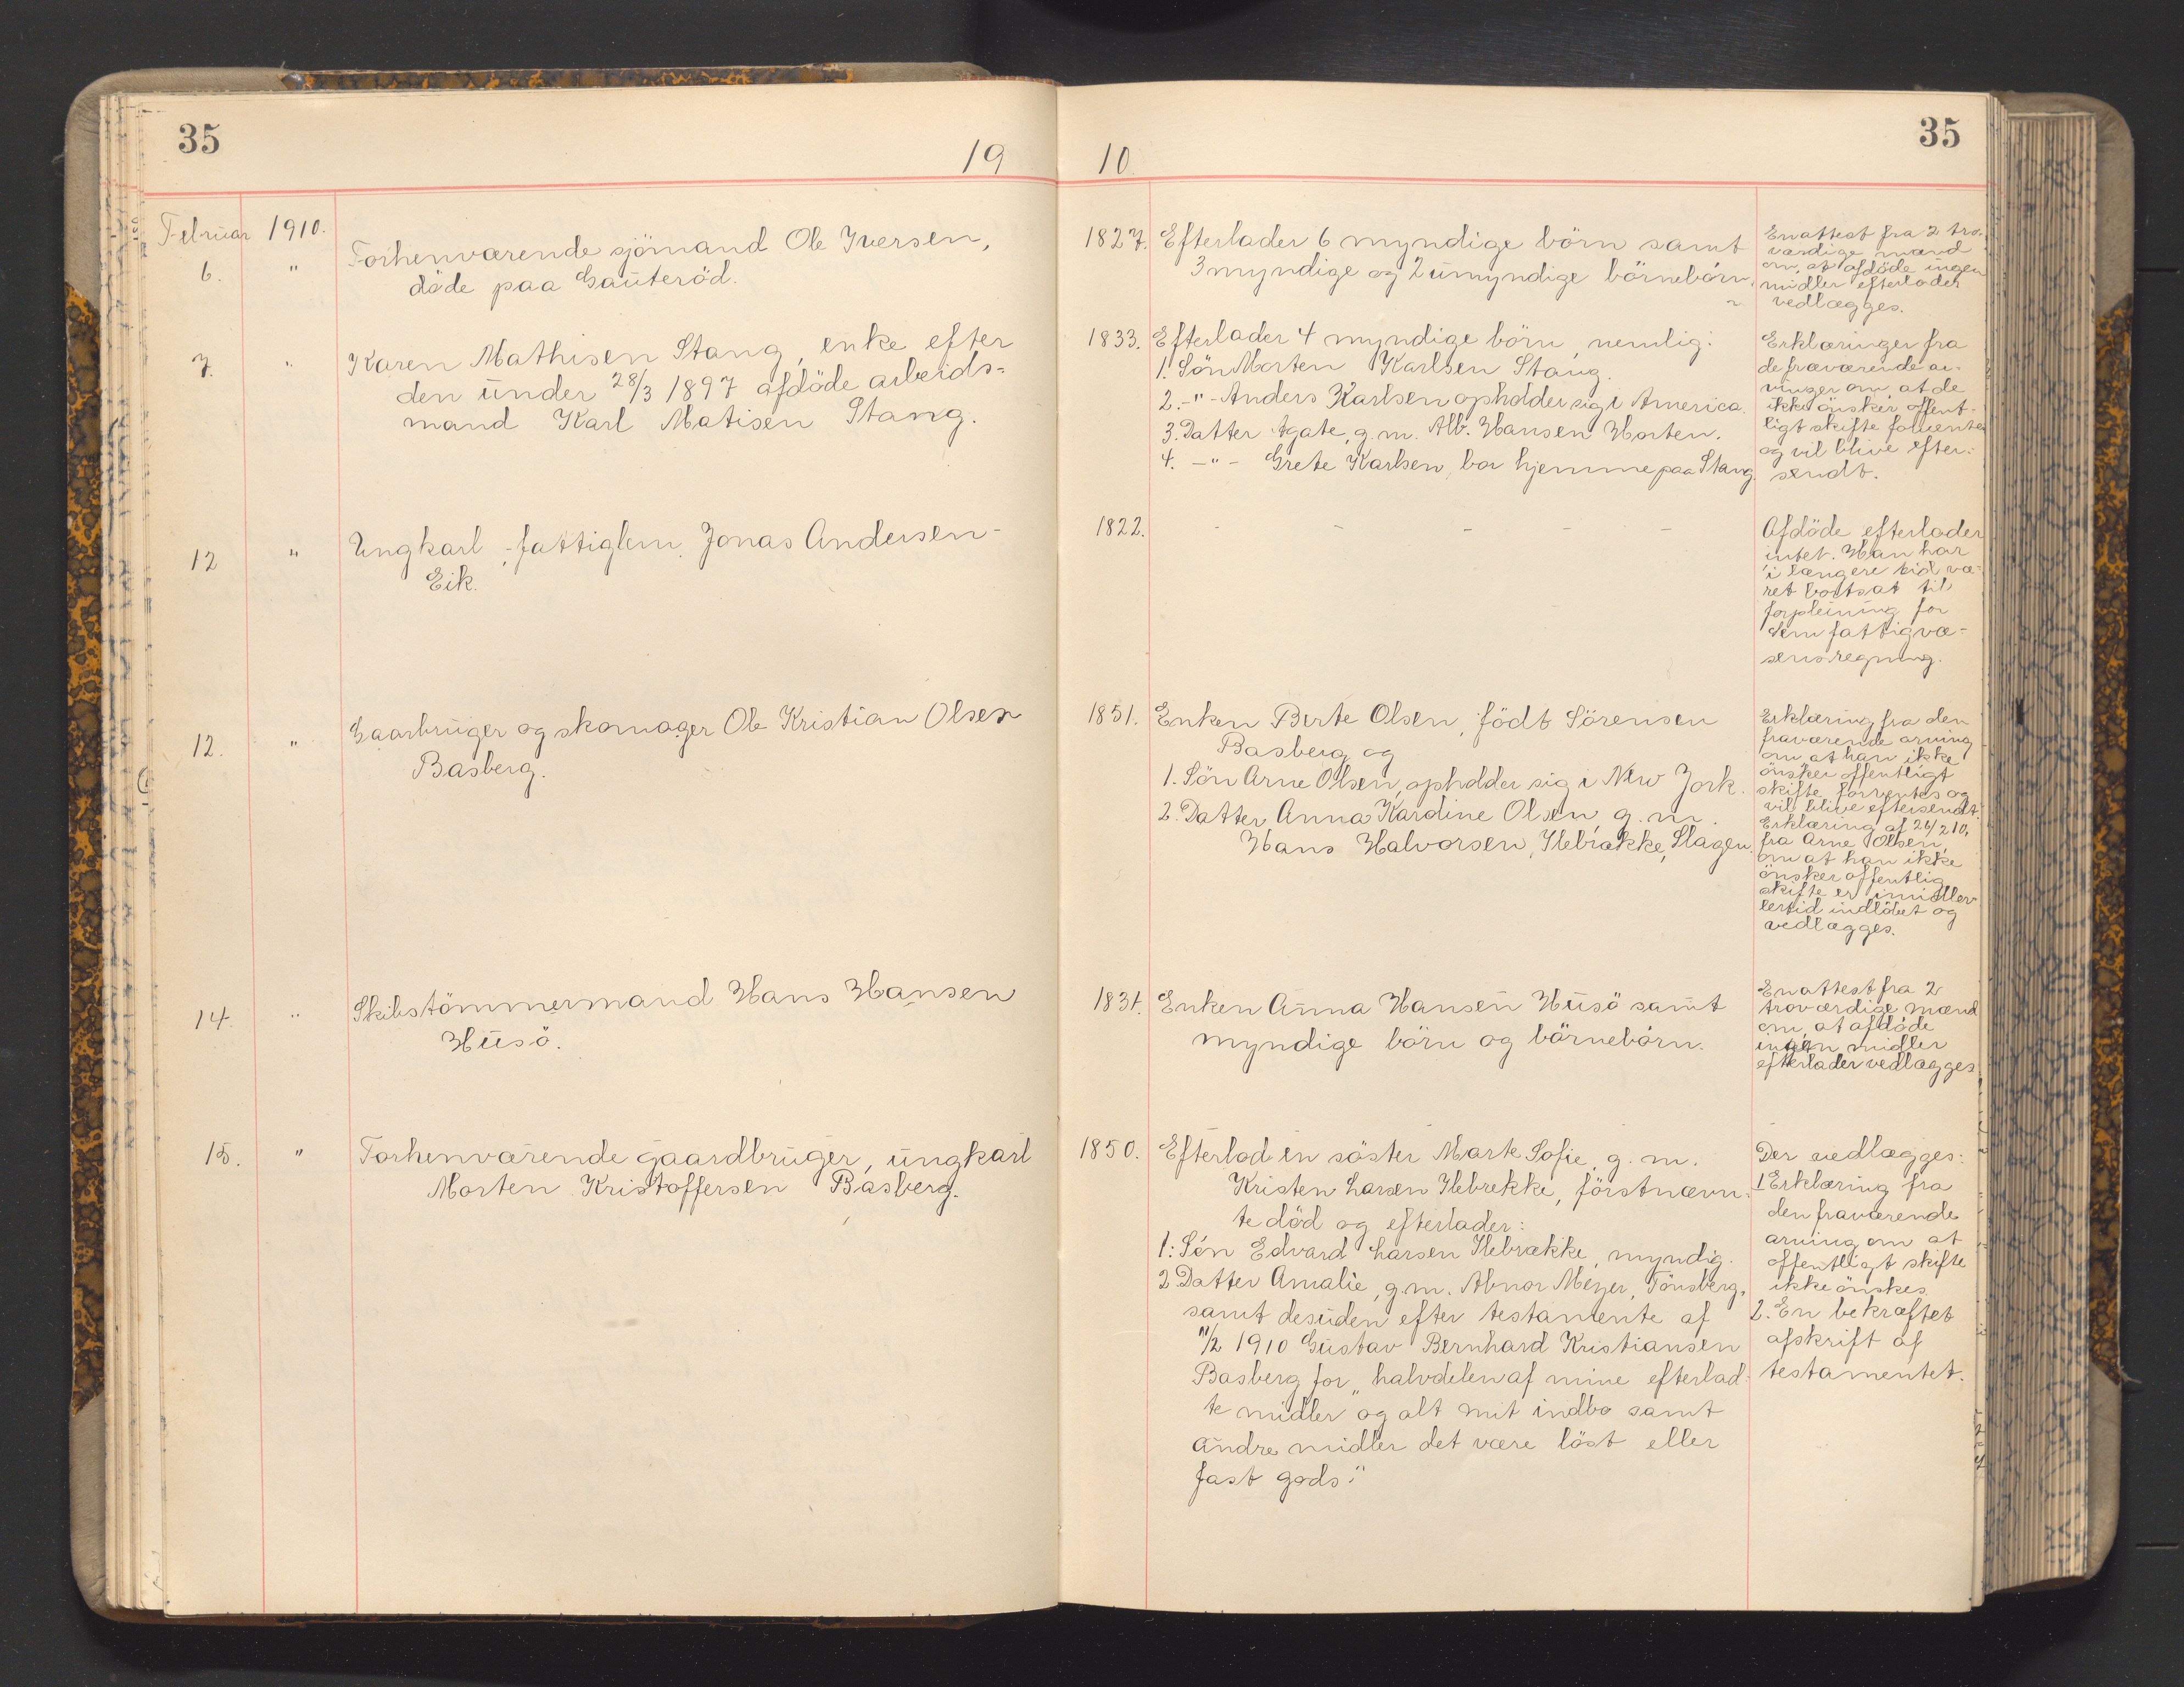 35
19
Februar 1910.
6. " Forhenværende sjömand Ole Iversen,
döde paa Gauteröd.
7. " Karen Mathisen Stang, enke efter
den under 28/3 1897 afdöde arbeids-
mand Karl Matisen Stang.
12 " Ungkarl, fattiglem Jonas Andersen
Eik.
12. " Gaarbruger og skomager Ole Kristian Olsen
Basberg.
14. " Skibstömmermand Hans Hansen
Husö.
15. " Forhenværende gaardbruger, ungkarl
Morten Kristoffersen Basberg.
35
10.
1827. Efterlader 6 myndige börn samt
3 myndige og 2 umyndige börnebörn.
En attest fra 2 tro-
værdige mænd
om, at afdöde ingen
midler efterlader
vedlægges.
1833. Efterlader 4 myndige börn, nemlig:
1. Sön Morten Karlsen Stang.
2. -"- Anders Karlsen opholder sig i America.
3. Datter Agate, g. m. Alb. Hansen Horten.
4. -"- Grete Karlsen, bor hjemme paa Stang.
Erklæringer fra
de fraværende ar-
vinger om, at de
ikke önsker offent-
ligt skifte forventes
og vil blive efter-
sendt.
1822. - - - - -
Afdöde efterlader
intet. Han har
i længere tid væ-
ret bortsat til
forpleining for
Sem fattigvæ-
sens regning.
1851. Enken Berte Olsen, födt Sörensen
Basberg og
1. Sön Arne Olsen, opholder sig i New York.
2. Datter Anna Kardine Olsen, g. m.
Hans Halvorsen, Ilebrække, Slagen.
Erklæring fra den
fraværende arving
om at han ikke
önsker offentligt
skifte forventes og
vil blive eftersendt.
Erklæring af 26/2 10,
fra Arne Olsen,
om at han ikke
önsker offentlig
skifte er imidler
lertid indlöbet og
vedlægges.
1831. Enken Anna Hansen Husö samt
myndige börn og börnebörn.
En attest fra 2
troværdige mænd
om, at afdöde
ingen midler
efterlader vedlægges
1850. Efterlod en söster Marte Sofie, g. m.
Kristen Larsen Ilebrekke, förstnævn-
te död og efterlader:
1: Sön Edvard Larsen Ilebrække, myndig.
2 Datter Amalie, g. m. Abnor Meyer, Tönsberg,
samt desuden efter testamente af
11/2 1910 Gustav Bernhard Kristiansen
Basberg for "halvdelen af mine efterlad-
te midler og alt mit indbo samt
andre midler det være löst eller
fast gods."
Der vedlægges:
1 Erklæring fra
den fraværende
arving om at
offentligt skifte
ikke önskes
2. En bekræftet
afskrift af
testamentet.